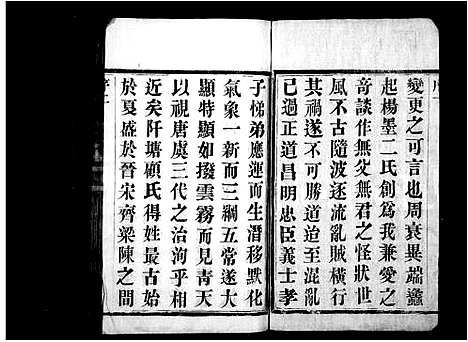 序一
變更之可言也周衰異端蠭
起楊墨二氏創為我兼愛之
奇談作無父無君之怪狀世
風不古隨波逐流亂賊橫行
其禍遂不可勝道迨至混亂
已過正道昌明忠臣義士孝
子悌弟應運而生潛移默化
氣象一新而三綱五常遂大
顯特顯如撥雲霧而見青天
以視唐虞三代之治洵乎相
近矣阡塘顧氏得姓最古始
於夏盛於晉宋齊梁陳之間
序二